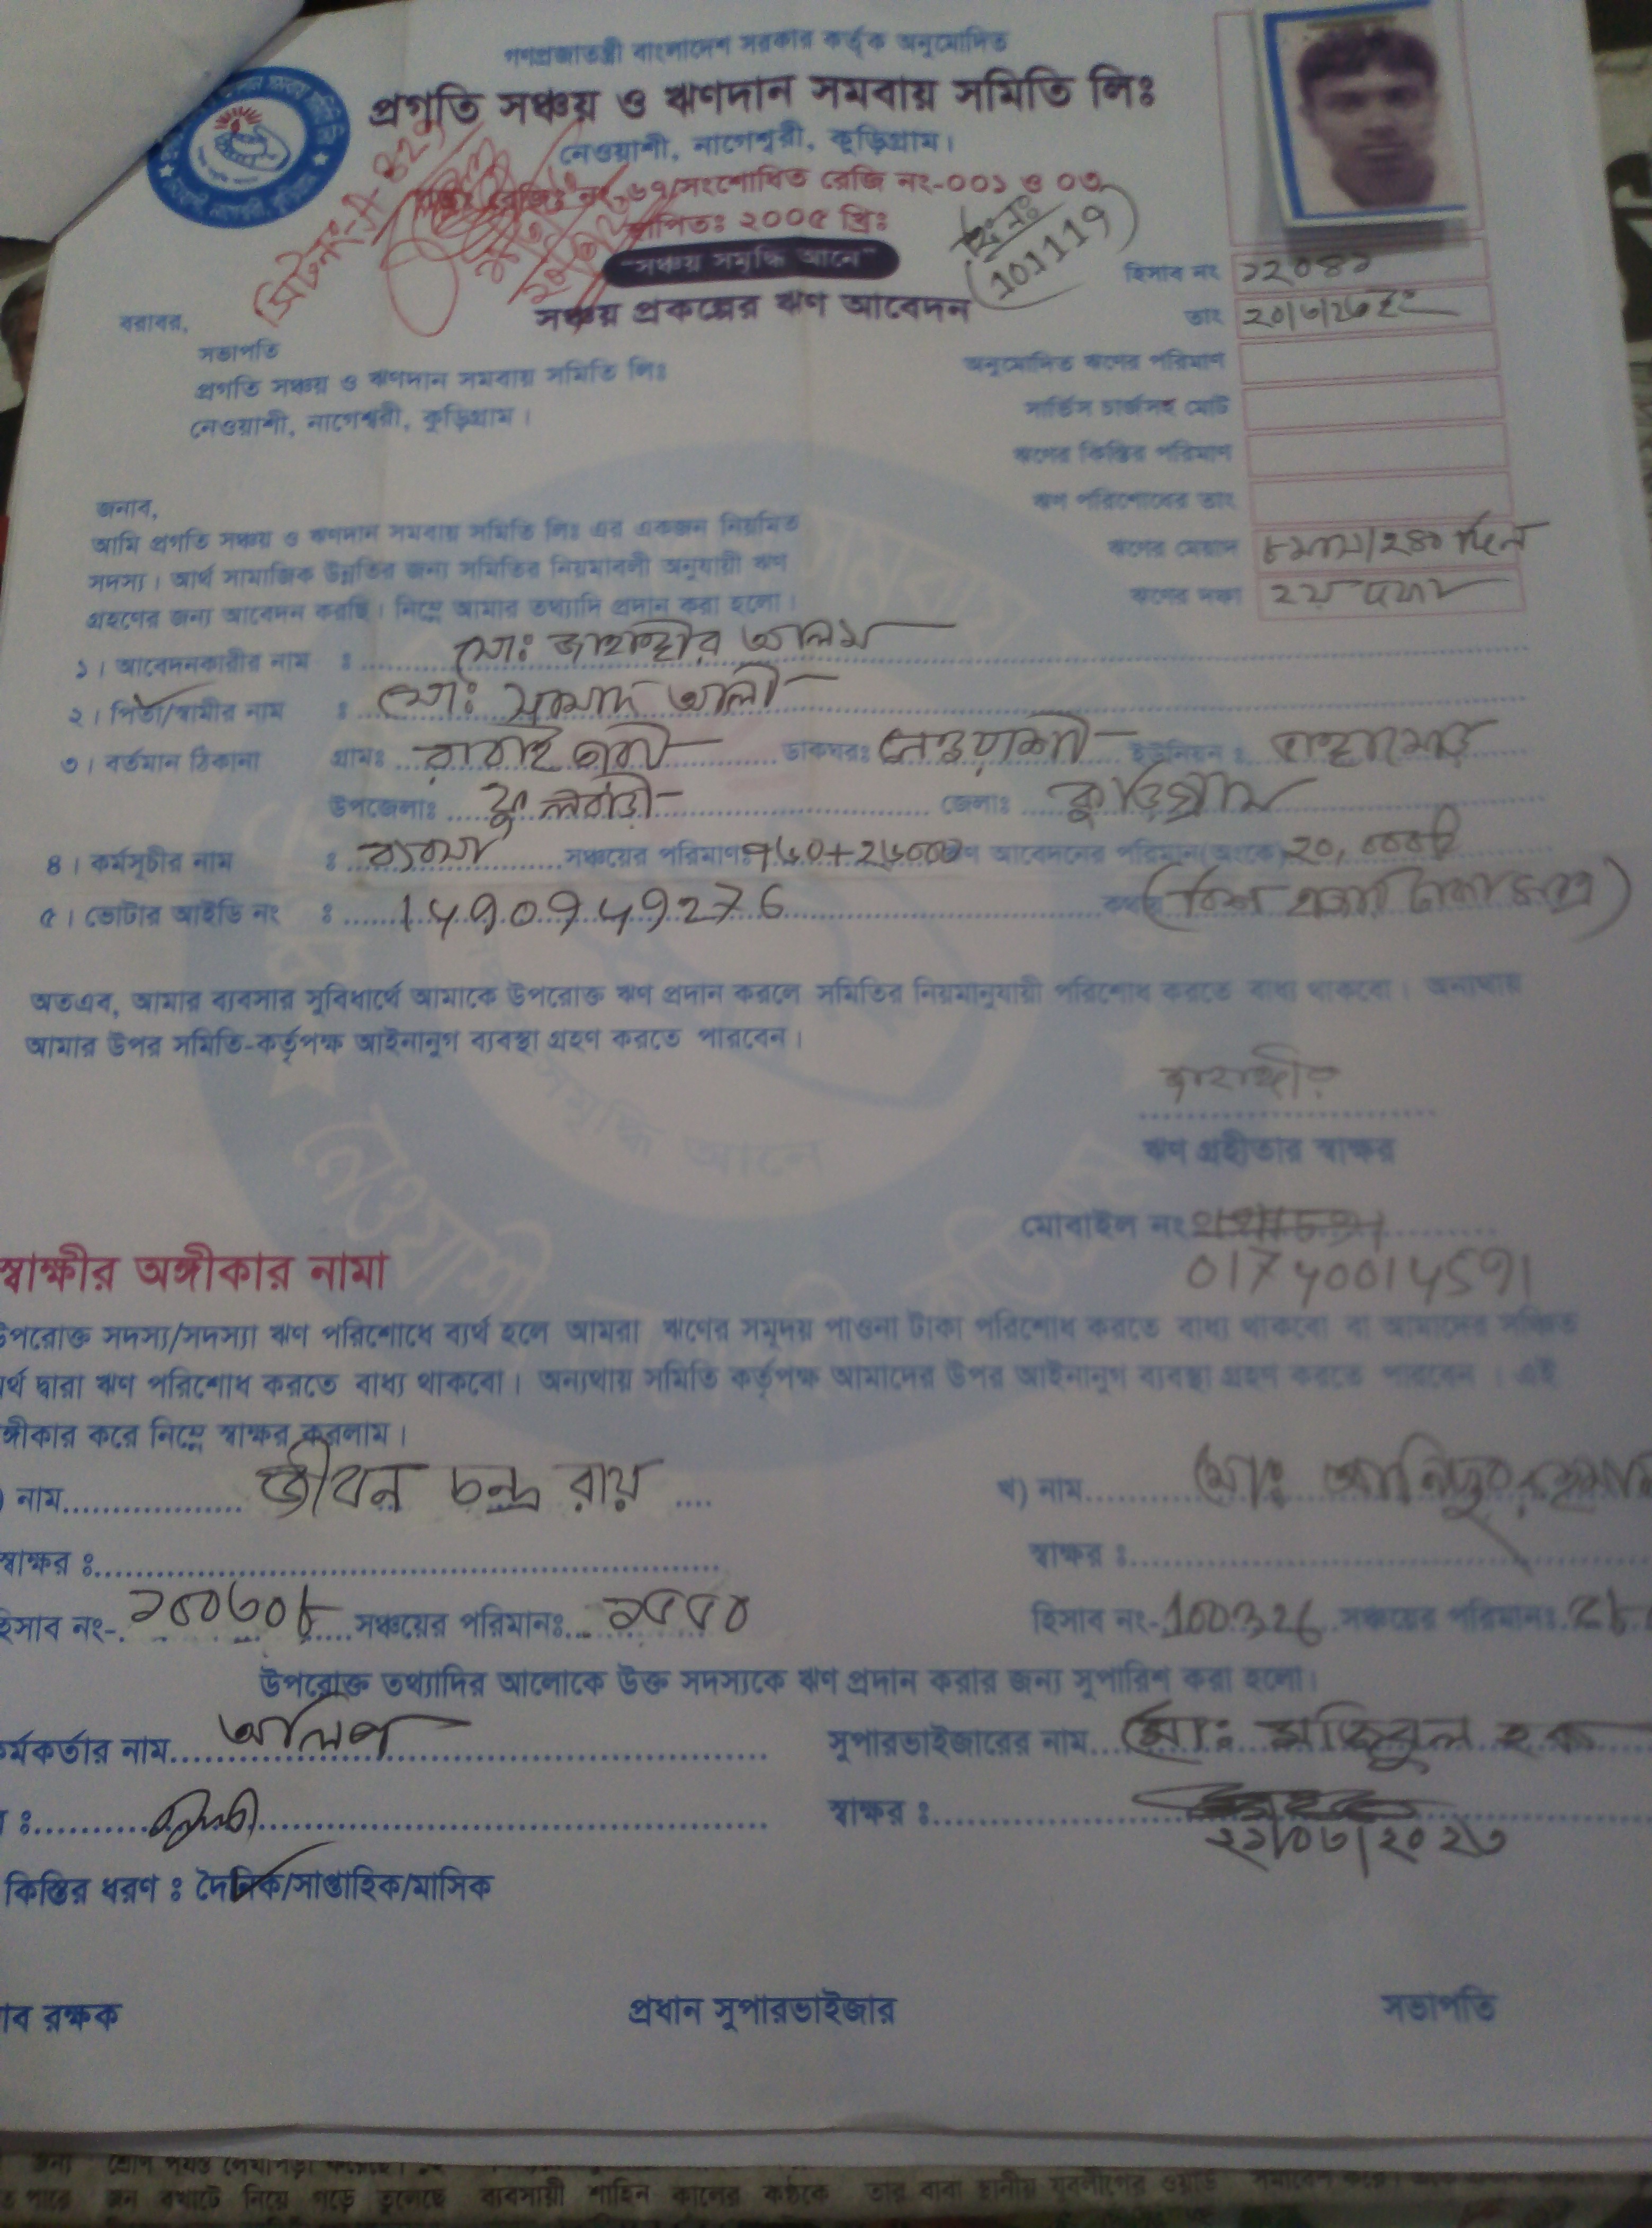 গণপ্রজাতন্ত্রী বাংলাদেশ সরকার কর্তৃক অনুমোদিত
প্রগতি সঞ্চয় ও ঋণদান সমবায় সমিতি লিঃ
নেওয়াশী, নাগেশ্বরী, কুড়িগ্রাম।
রেজিঃ নং-৬৭/সংশোধিত রেজি নং-০০১ ও ০৩
স্থাপিতঃ ২০০৫ খ্রিঃ
"সঞ্চয় সমৃদ্ধি আনে"
101119
সঞ্চয় প্রকল্পের ঋণ আবেদন
হিসাব নং ১২০৪১
তাং
অনুমোদিত ঋণের পরিমাণ
সার্ভিস চার্জসহ মোট
ঋণের কিস্তির পরিমাণ
ঋণ পরিশোধের তাং
ঋণের মেয়াদ ৮ মাস/২৪০ দিন
ঋণের দফা ২য় দফা
বরাবর,
সভাপতি
প্রগতি সঞ্চয় ও ঋণদান সমবায় সমিতি লিঃ
নেওয়াশী, নাগেশ্বরী, কুড়িগ্রাম।
জনাব,
আমি প্রগতি সঞ্চয় ও ঋণদান সমবায় সমিতি লিঃ এর একজন নিয়মিত
সদস্য। আর্থ সামাজিক উন্নতির জন্য সমিতির নিয়মাবলী অনুযায়ী ঋণ
গ্রহণের জন্য আবেদন করছি। নিম্নে আমার তথ্যাদি প্রদান করা হলো।
১। আবেদনকারীর নাম ঃ মোঃ জাহাঙ্গীর আলম
২। পিতা/স্বামীর নাম ঃ মোঃ সামাদ আলী
৩। বর্তমান ঠিকানা গ্রামঃ রাবাইতারী ডাকঘরঃ নেওয়াশী ইউনিয়ন ঃ
উপজেলাঃ ফুলবাড়ী জেলাঃ কুড়িগ্রাম
৪। কর্মসূচীর নাম ঃ ব্যবসা সঞ্চয়ের পরিমাণঃ ঋণ আবেদনের পরিমান(অংকে) ২০,০০০/
৫। ভোটার আইডি নং ঃ 1490949276 কথায় (বিশ হাজার টাকা মাত্র)
অতএব, আমার ব্যবসার সুবিধার্থে আমাকে উপরোক্ত ঋণ প্রদান করলে সমিতির নিয়মানুযায়ী পরিশোধ করতে বাধ্য থাকবো। অন্যথায়
আমার উপর সমিতি-কর্তৃপক্ষ আইনানুগ ব্যবস্থা গ্রহণ করতে পারবেন।
জাহাঙ্গীর
ঋণ গ্রহীতার স্বাক্ষর
মোবাইল নং
01740014591
স্বাক্ষীর অঙ্গীকার নামা
উপরোক্ত সদস্য/সদস্যা ঋণ পরিশোধে ব্যর্থ হলে আমরা ঋণের সমুদয় পাওনা টাকা পরিশোধ করতে বাধ্য থাকবো বা আমাদের সঞ্চিত
র্থ দ্বারা ঋণ পরিশোধ করতে বাধ্য থাকবো। অন্যথায় সমিতি কর্তৃপক্ষ আমাদের উপর আইনানুগ ব্যবস্থা গ্রহণ করতে পারবেন। এই
ঙ্গীকার করে নিম্নে স্বাক্ষর করলাম।
) নাম জীবন চন্দ্র রায় খ) নাম মোঃ আনিছুর রহমান
স্বাক্ষর ঃ স্বাক্ষর ঃ
হিসাব নং- ১০০৬০৮ সঞ্চয়ের পরিমানঃ ১৫৫০ হিসাব নং- 100326 সঞ্চয়ের পরিমানঃ
উপরোক্ত তথ্যাদির আলোকে উক্ত সদস্যকে ঋণ প্রদান করার জন্য সুপারিশ করা হলো।
র্মকর্তার নাম সুপারভাইজারের নাম মোঃ মজিবুল হক
র ঃ স্বাক্ষর ঃ
২১/০৩/২০২৩
কিস্তির ধরণ ঃ দৈনিক/সাপ্তাহিক/মাসিক
াব রক্ষক প্রধান সুপারভাইজার সভাপতি